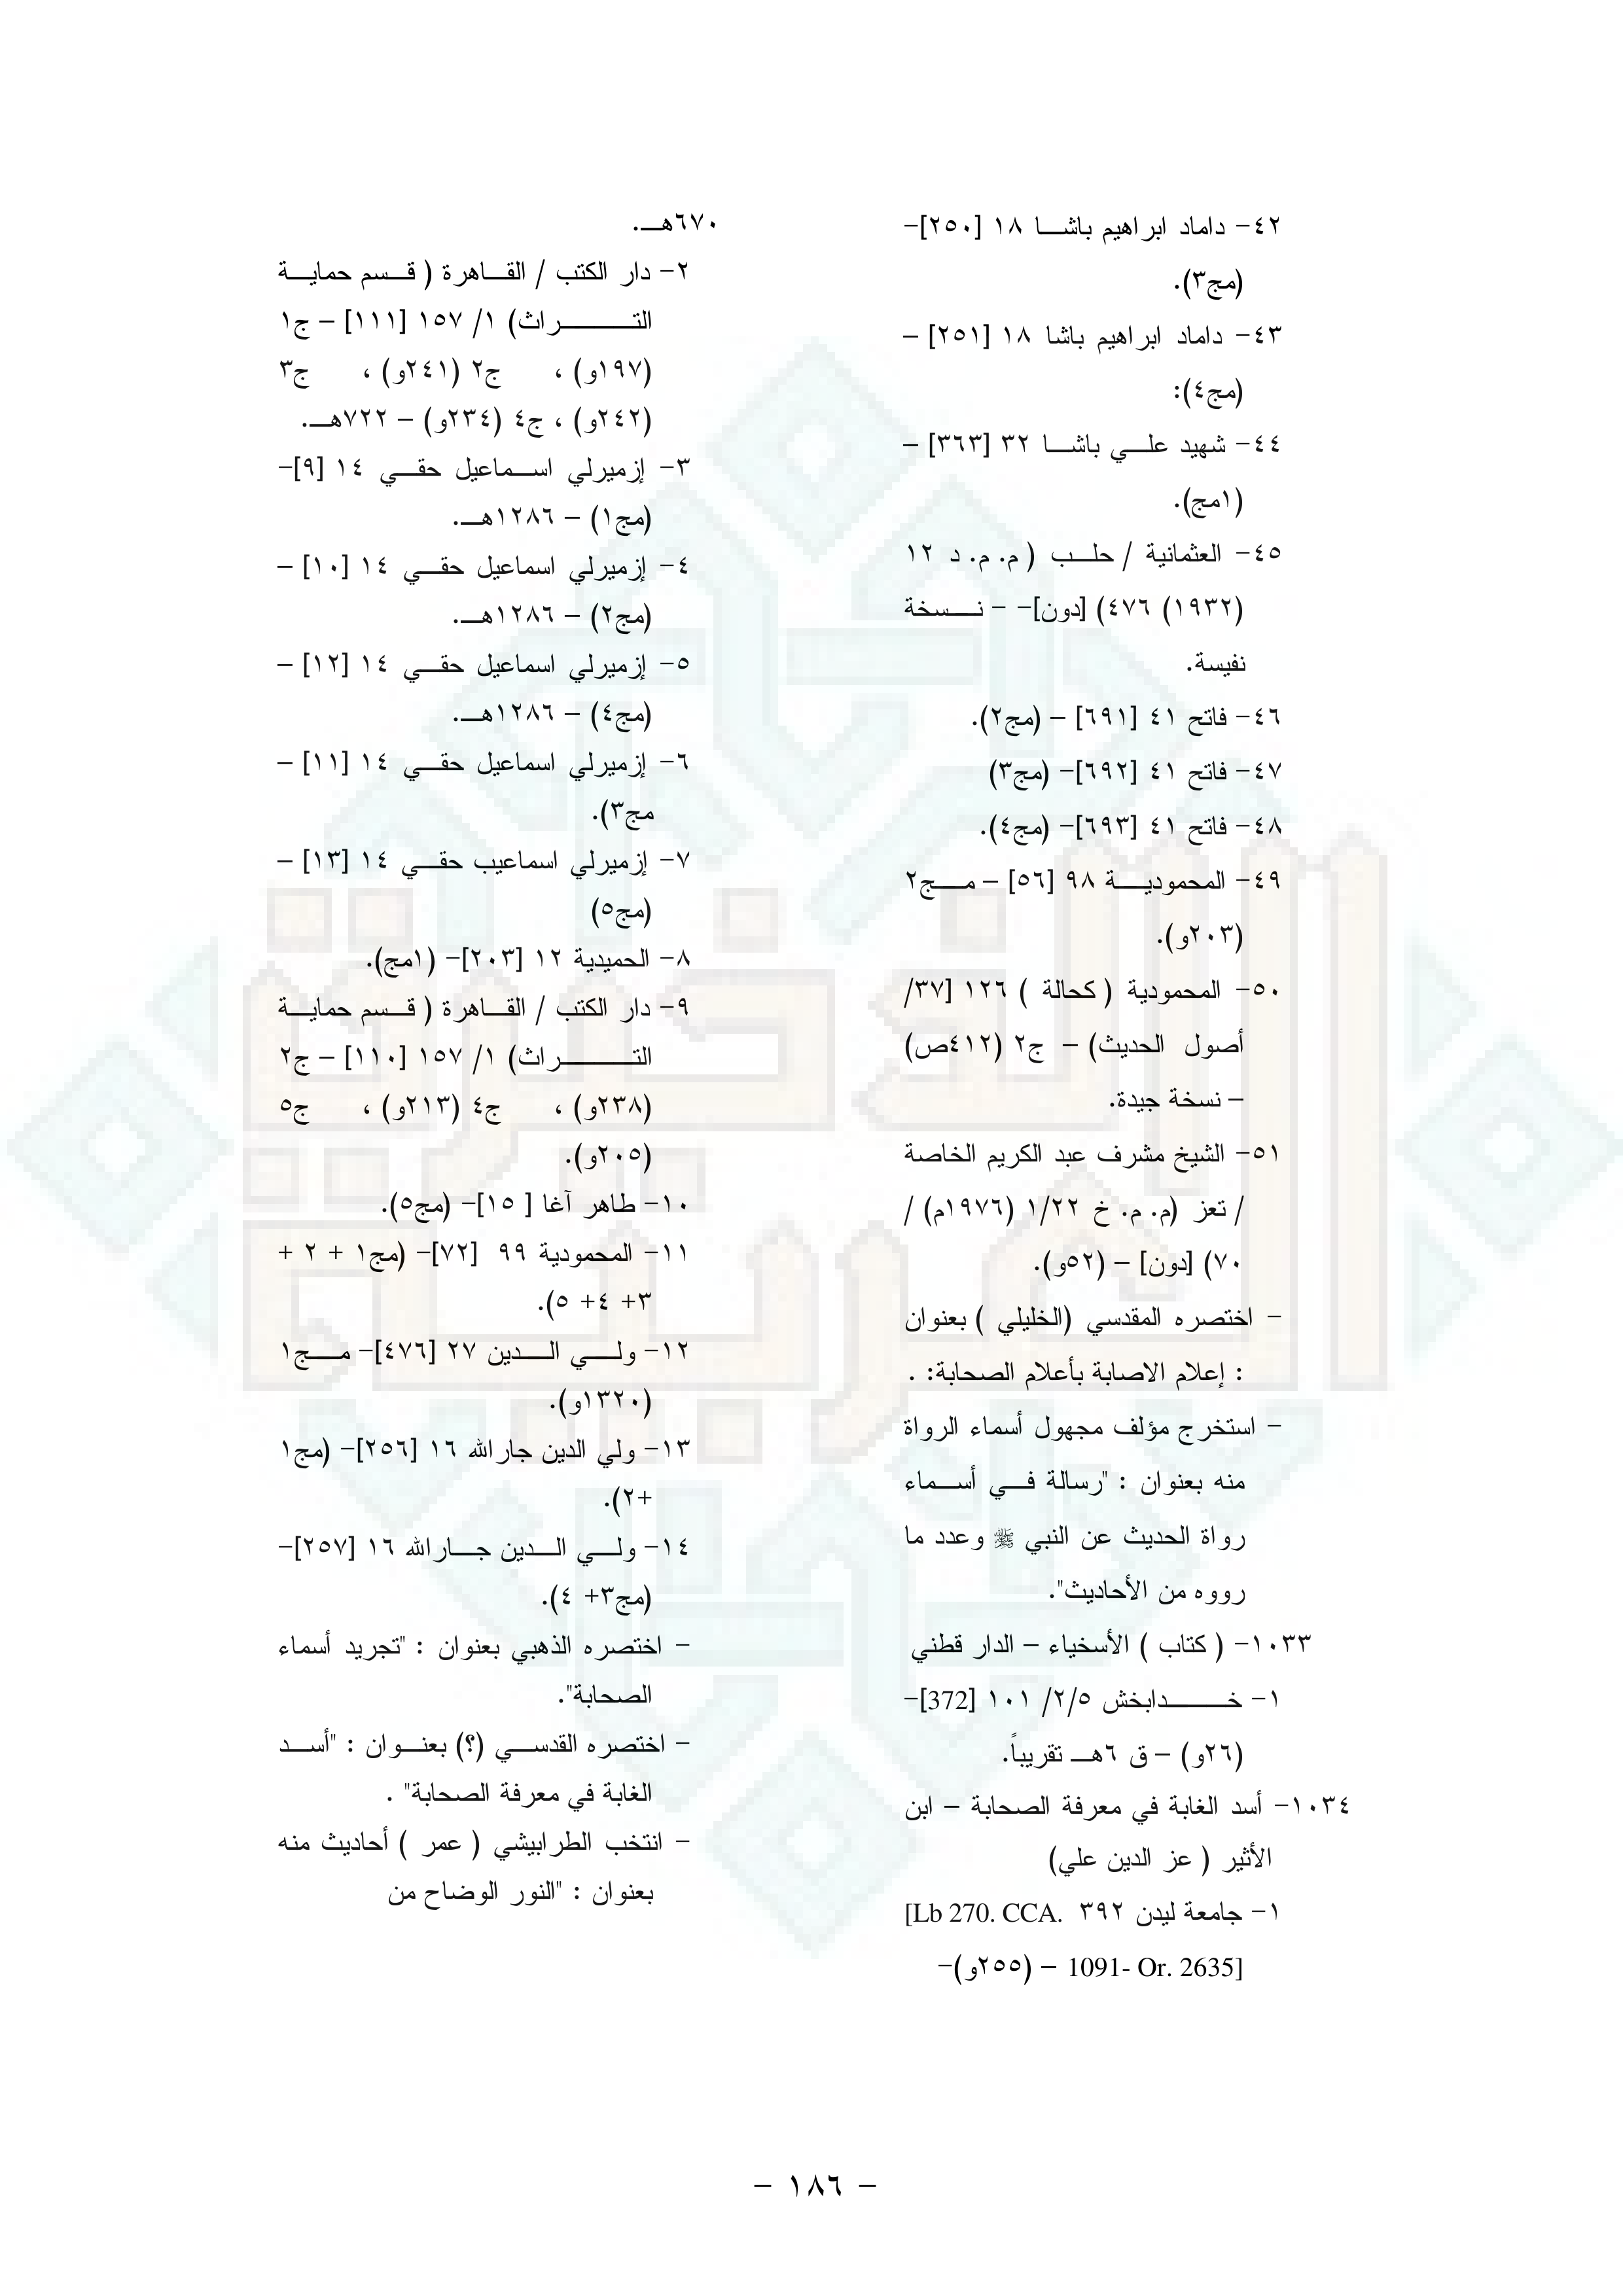 ٤٢- داماد ابراهيم باشا ١٨ [٢٥٠]-
(مج٣).
٤٣- داماد ابراهيم باشا ١٨ [٢٥١] –
(مج٤):
٤٤- شهيد علي باشا ٣٢ [٣٦٣] –
(١مج).
٤٥- العثمانية / حلب ( م. م. د ١٢
(١٩٣٢) ٤٧٦) [دون]- - نسخة
نفيسة.
٤٦- فاتح ٤١ [٦٩١] – (مج٢).
٤٧- فاتح ٤١ [٦٩٢]- (مج٣)
٤٨- فاتح ٤١ [٦٩٣]- (مج٤).
٤٩- المحمودية ٩٨ [٥٦] – مج٢
(٢٠٣و).
٥٠- المحمودية ( كحالة ) ١٢٦ [٣٧/
أصول الحديث) – ج٢ (٤١٢ص)
– نسخة جيدة.
٥١- الشيخ مشرف عبد الكريم الخاصة
/ تعز (م. م. خ ١/٢٢ (١٩٧٦م) /
٧٠) [دون] – (٥٢و).
- اختصره المقدسي (الخليلي ) بعنوان
: إعلام الاصابة بأعلام الصحابة: .
- استخرج مؤلف مجهول أسماء الرواة
منه بعنوان : "رسالة في أسماء
رواة الحديث عن النبي ﷺ وعدد ما
رووه من الأحاديث".
١٠٣٣- ( كتاب ) الأسخياء – الدار قطني
١- خدابخش ٢/٥/ ١٠١ [372]-
(٢٦و) – ق ٦هـ تقريباً.
١٠٣٤- أسد الغابة في معرفة الصحابة – ابن
الأثير ( عز الدين علي)
١- جامعة ليدن ٣٩٢ [Lb 270. CCA.
1091- Or. 2635] – (٢٥٥و)-
٦٧٠هـ.
٢- دار الكتب / القاهرة ( قسم حماية
التراث) ١/ ١٥٧ [١١١] – ج١
(١٩٧و) ، ج٢ (٢٤١و) ، ج٣
(٢٤٢و) ، ج٤ (٢٣٤و) – ٧٢٢هـ.
٣- إزميرلي اسماعيل حقي ١٤ [٩]-
(مج١) – ١٢٨٦هـ.
٤- إزميرلي اسماعيل حقي ١٤ [١٠] –
(مج٢) – ١٢٨٦هـ.
٥- إزميرلي اسماعيل حقي ١٤ [١٢] –
(مج٤) – ١٢٨٦هـ.
٦- إزميرلي اسماعيل حقي ١٤ [١١] –
مج٣).
٧- إزميرلي اسماعيب حقي ١٤ [١٣] –
(مج٥)
٨- الحميدية ١٢ [٢٠٣]- (١مج).
٩- دار الكتب / القاهرة ( قسم حماية
التراث) ١/ ١٥٧ [١١٠] – ج٢
(٢٣٨و) ، ج٤ (٢١٣و) ، ج٥
(٢٠٥و).
١٠- طاهر آغا [ ١٥]- (مج٥).
١١- المحمودية ٩٩ [٧٢]- (مج١ + ٢ +
٣+ ٤+ ٥).
١٢- ولي الدين ٢٧ [٤٧٦]- مج١
(١٣٢٠و).
١٣- ولي الدين جارالله ١٦ [٢٥٦]- (مج١
+٢).
١٤- ولي الدين جارالله ١٦ [٢٥٧]-
(مج٣+ ٤).
- اختصره الذهبي بعنوان : "تجريد أسماء
الصحابة".
- اختصره القدسي (؟) بعنوان : "أسد
الغابة في معرفة الصحابة" .
- انتخب الطرابيشي ( عمر ) أحاديث منه
بعنوان : "النور الوضاح من
- ١٨٦ -